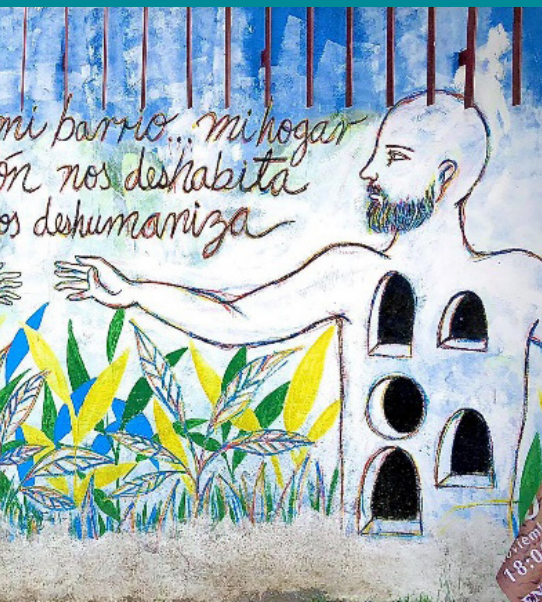 mi barrio... mi hogar
ón nos deshabita
os deshumaniza
18:0